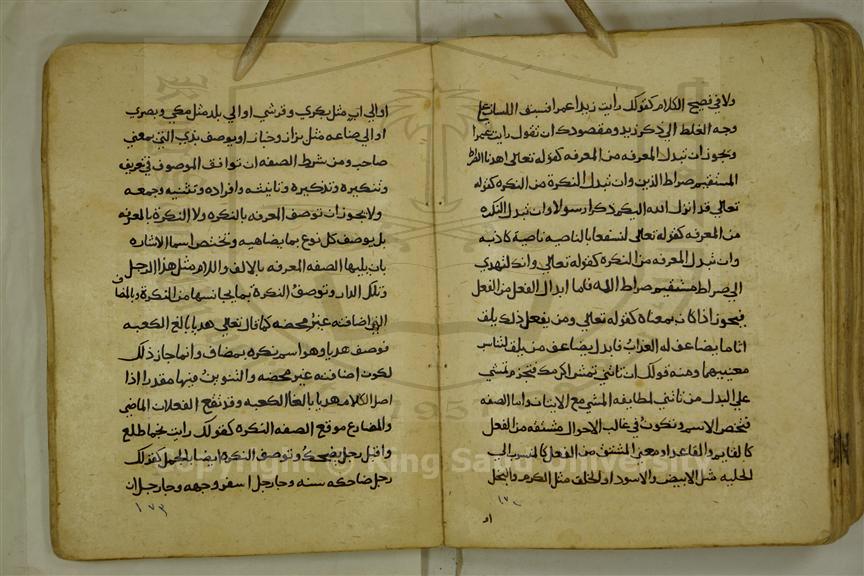 ولا في فصيح الكلام كقولك رايت زيدا عمرا فسبق اللسان علي
وجه الغلط الي ذكر زيد ومقصودك ان تقول رايت عمرا
ويجوز ان تبدل المعرفه من المعرفه كقوله تعالي اهدنا الصراط
المستقيم صراط الذين وان تبدل النكرة من النكره كقوله
تعالي قد انزل الله اليكم ذكرا رسولا وان تبدل النكره
من المعرفه كقوله تعالي لنسفعا بالناصيه ناصية كاذبه
وان تبدل المعرفه من النكره كقوله تعالي وانك لتهدي
الي صراط مستقيم صراط الله فاما ابدال الفعل من الفعل
فيجوز اذا كان بمعناه كقوله تعالي ومن يفعل ذلك يلق
اثاما يضاعف له العذاب فابدل يضاعف من يلق لتناسب
معنييهما ومنه قولك ان تاتني تمش اكرمك فتجزم تمشي
علي البدل من تاتني لمطابقه المشي مع الاتيان واما الصفه
فتخص الاسم وتكون في غالب الاحوال مشتقه من الفعل
كالقايم والقاعد او معني المشتق من الفعل كالمنسوب الي
الحليه مثل الابيض والاسود او الخلق مثل الكرم والبخل
او
اوالي اب مثل بكري وقرشي اوالي بلد مثل مكي وبصري
اوالي صناعه مثل بزاز وخباز او يوصف بذي التي بمعني
صاحب ومن شرط الصفه ان توافق الموصوف في تعريفه
وتنكيره وتذكيره وتانيثه وافراده وتثنيه وجمعه
ولا يجوز ان توصف المعرفه بالنكره ولا النكرة بالمعرفه
بل يوصف كل نوع بما يضاهيه وتختص اسما الاشاره
بان يليها الصفه المعرفه بالالف واللام مثل هذا الرجل
وتلك الدار وتوصف النكرة بما يجانسها من النكرة وبالمضاف
الذي اضافته غير محضه كما قال تعالي هديا بالغ الكعبه
فوصف هديا وهو اسم نكره بمضاف وانما جاز ذلك
لكون اضافته غير محضه والتنوين فيها مقدرا اذا
اصل الكلام هديا بالغا الكعبه وقد تقع الفعلان الماضي
والمضارع موقع الصفه النكره كقولك رايت نجما طلع
واقبل رجل يضحك وتوصف النكرة ايضا بالجمل كقولك
رجل ضاحكه سنه وجا رجل اسفر وجهه وجا رجل ان
١٧٣
Copyright © King Saud University
1957